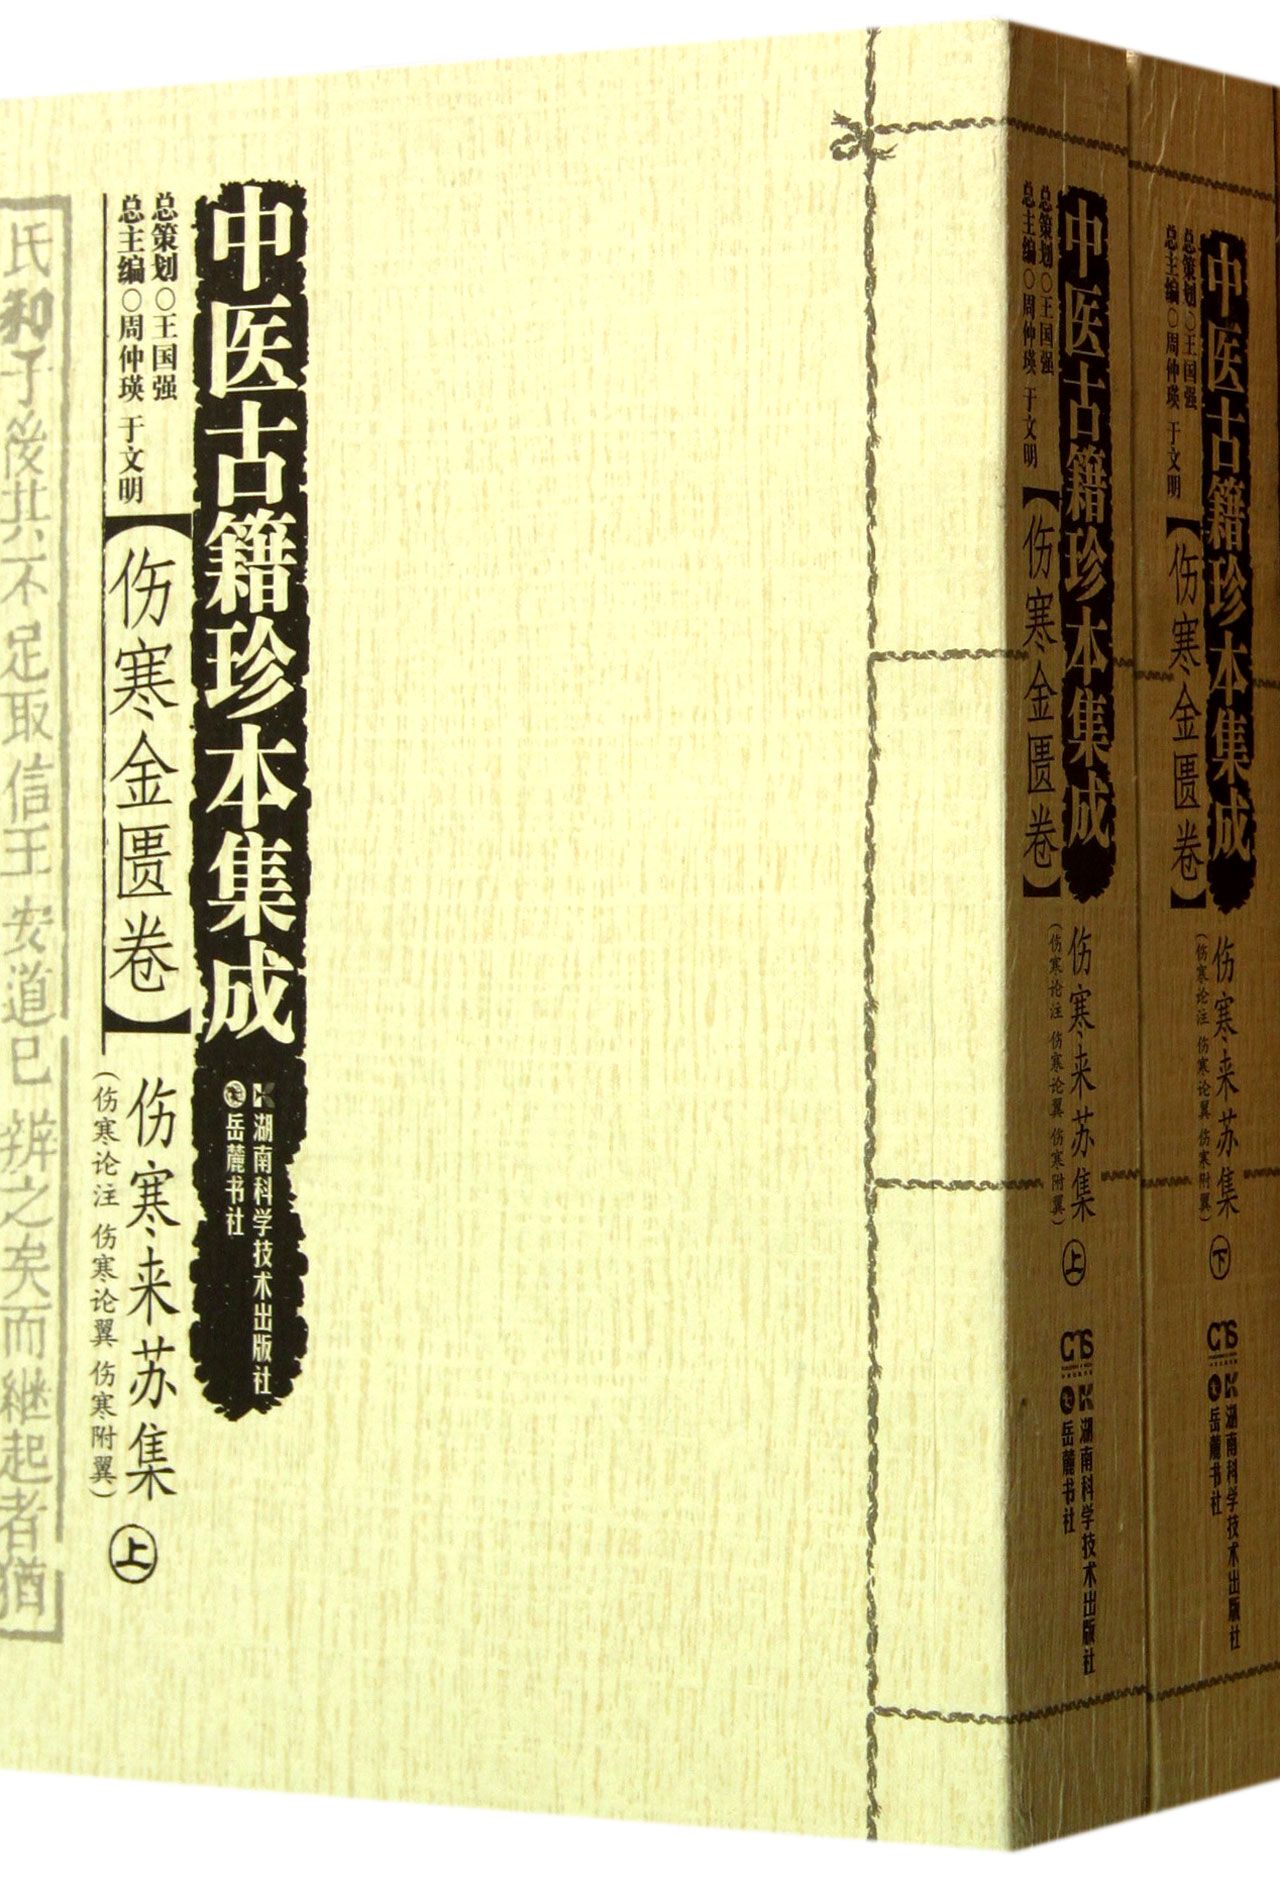 中医古籍珍本集成
总策划○王国强
总主编○周仲瑛 于文明
【伤寒金匮卷】
伤寒来苏集
（伤寒论注 伤寒论翼 伤寒附翼）
上
湖南科学技术出版社
岳麓书社
氏和子後共不足取信王安道已辨之矣而继起者猶
中医古籍珍本集成
总策划○王国强
总主编○周仲瑛 于文明
【伤寒金匮卷】
伤寒来苏集
（伤寒论注 伤寒论翼 伤寒附翼）
上
湖南科学技术出版社
岳麓书社
中医古籍珍本集成
总策划○王国强
总主编○周仲瑛 于文明
【伤寒金匮卷】
伤寒来苏集
（伤寒论注 伤寒论翼 伤寒附翼）
下
湖南科学技术出版社
岳麓书社